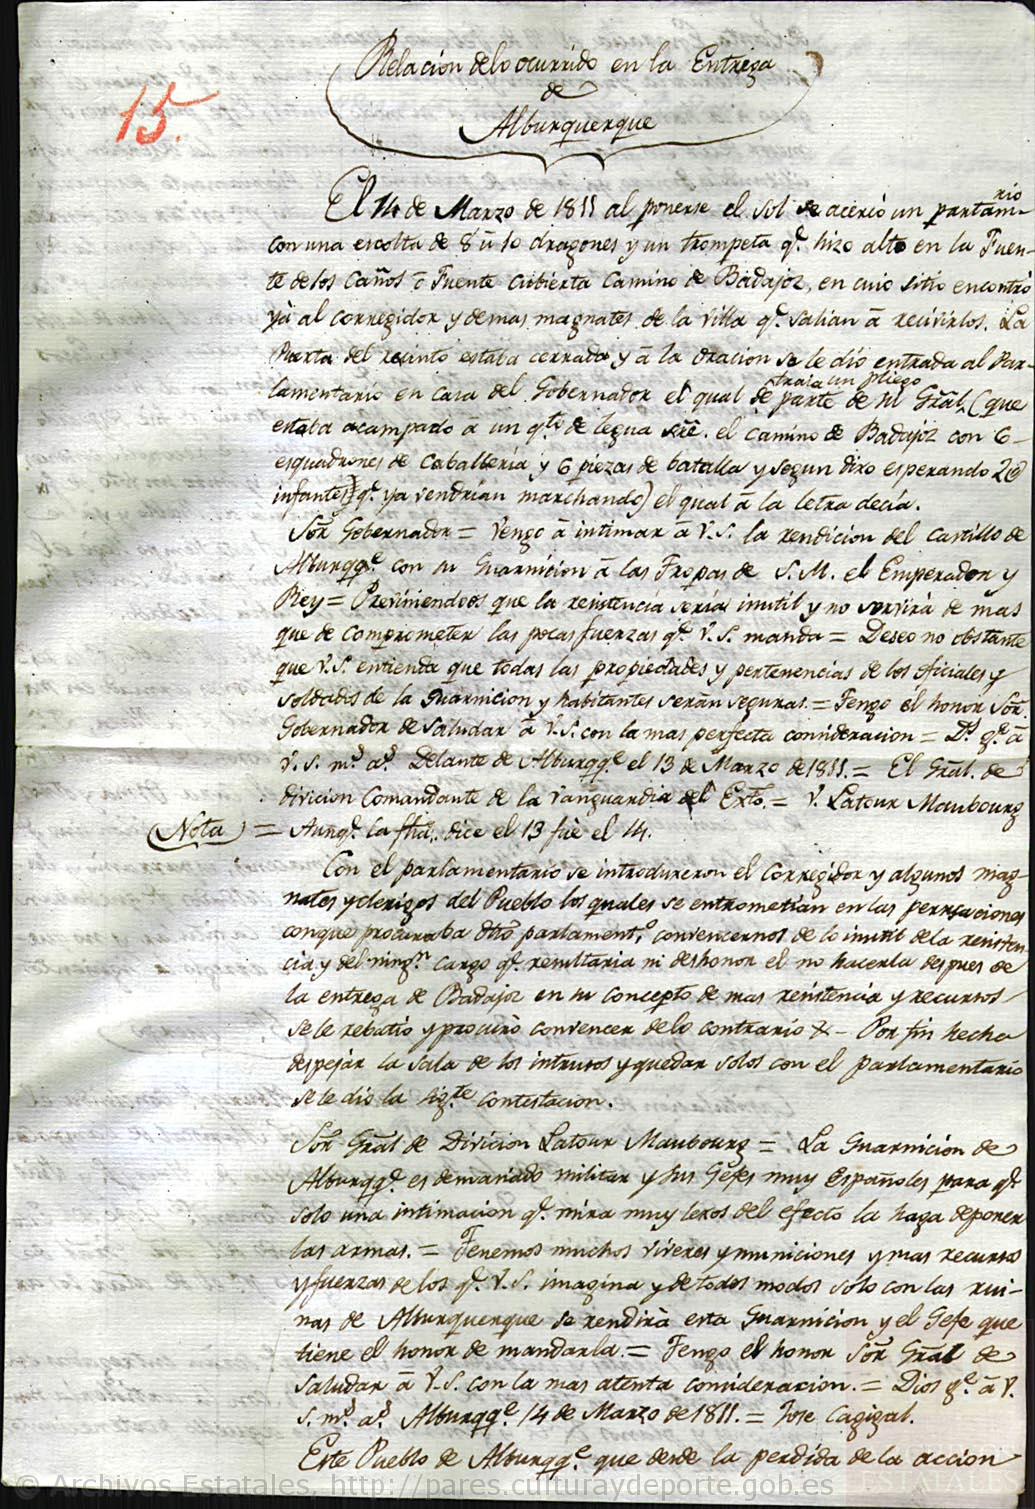 Relacion delo ocurrido en la Entrega
de
Alburquerque
15.
El 14 de Marzo de 1811 al ponerse el sol se acercó un parlam-rio
con una escolta de 8 ū 10 dragones y un trompeta q.e hizo alto en la Fuen-
te de los Caños ō Fuente cubierta camino de Badajoz, en cuio sitio encontro
yā al corregidor y demas magnates de la villa q.e salian ā recivirlos. La
Puerta del recinto estaba cerrada y ā la oracion se le dio entrada al Par-
lamentario en casa del Gobernador el qual traia un pliego de parte de su Gr̃al. (que
estaba acampado a un q.to de legua sr̃e. el camino de Badajoz con 6
esquadrones de caballeria y 6 piezas de batalla y segun dixo esperando 2@
infantes q.e ya vendrian marchando) el qual ā la letra decia.
Sōr Gobernador = Vengo ā intimar ā V.S. la rendicion del castillo de
Alburqq.e con su Guarnicion ā las Tropas de S. M. el Emperador y
Rey = Previniendoos que la resistencia seria inutil y no servirá de mas
que de comprometer las pocas fuerzas q.e V. S. manda = Deseo no obstante
que V.S. entienda que todas las propiedades y pertenencias de los oficiales y
soldados de la Guarnicion y habitantes serān seguras. = Tengo el honor Sōr
Gobernador de saludar ā V.S. con la mas perfecta consideracion = D.s g.e ā
V. S. m.s a.s Delante de Alburqq.e el 13 de Marzo de 1811. = El Gr̃al. de
division Comandante de la Vanguardia del Exto. = V. Latour Maubourg
Nota = Aunq.e la fh̃a. dice el 13 fue el 14.
Con el parlamentario se introdugeron el corregidor y algunos mag-
nates y clerigos del Pueblo los quales se entrometian en las persuaciones
conque procuraba dho parlament.o convencernos de lo inutil de la resisten-
cia y del ning.n cargo q.e resultaria ni deshonor el no hacerla despues de
la entrega de Badajoz en su concepto de mas resistencia y recursos
se le rebatio y procurò convencer de lo contrario &- Por fin hecha
despejar la sala de los intrusos y quedar solos con el parlamentario
se le dio la sig.te contestacion.
Sōr Gr̃al de Division Latour Maubourg = La Guarnicion de
Alburqq.e es demasiado militar y sus Gefes muy Españoles para q.e
solo una intimacion q.e mira muy lexos del efecto la haga deponer
las armas. = Tenemos muchos viveres y municiones y mas recursos
y fuerzas de los q.e V. S. imagina y de todos modos solo con las rui-
nas de Alburquerque se rendirà esta Guarnicion y el Gefe que
tiene el honor de mandarla. = Tengo el honor Sōr Gr̃al de
saludar ā V. S. con la mas atenta consideracion. = Dios g.e ā V.
S. m.s a.s Alburqq.e 14 de Marzo de 1811. = Jose Cagigal.
Este Pueblo de Alburqq.e que desde la perdida de la accion
© Archivos Estatales, http://pares.culturaydeporte.gob.es
ESTATALES